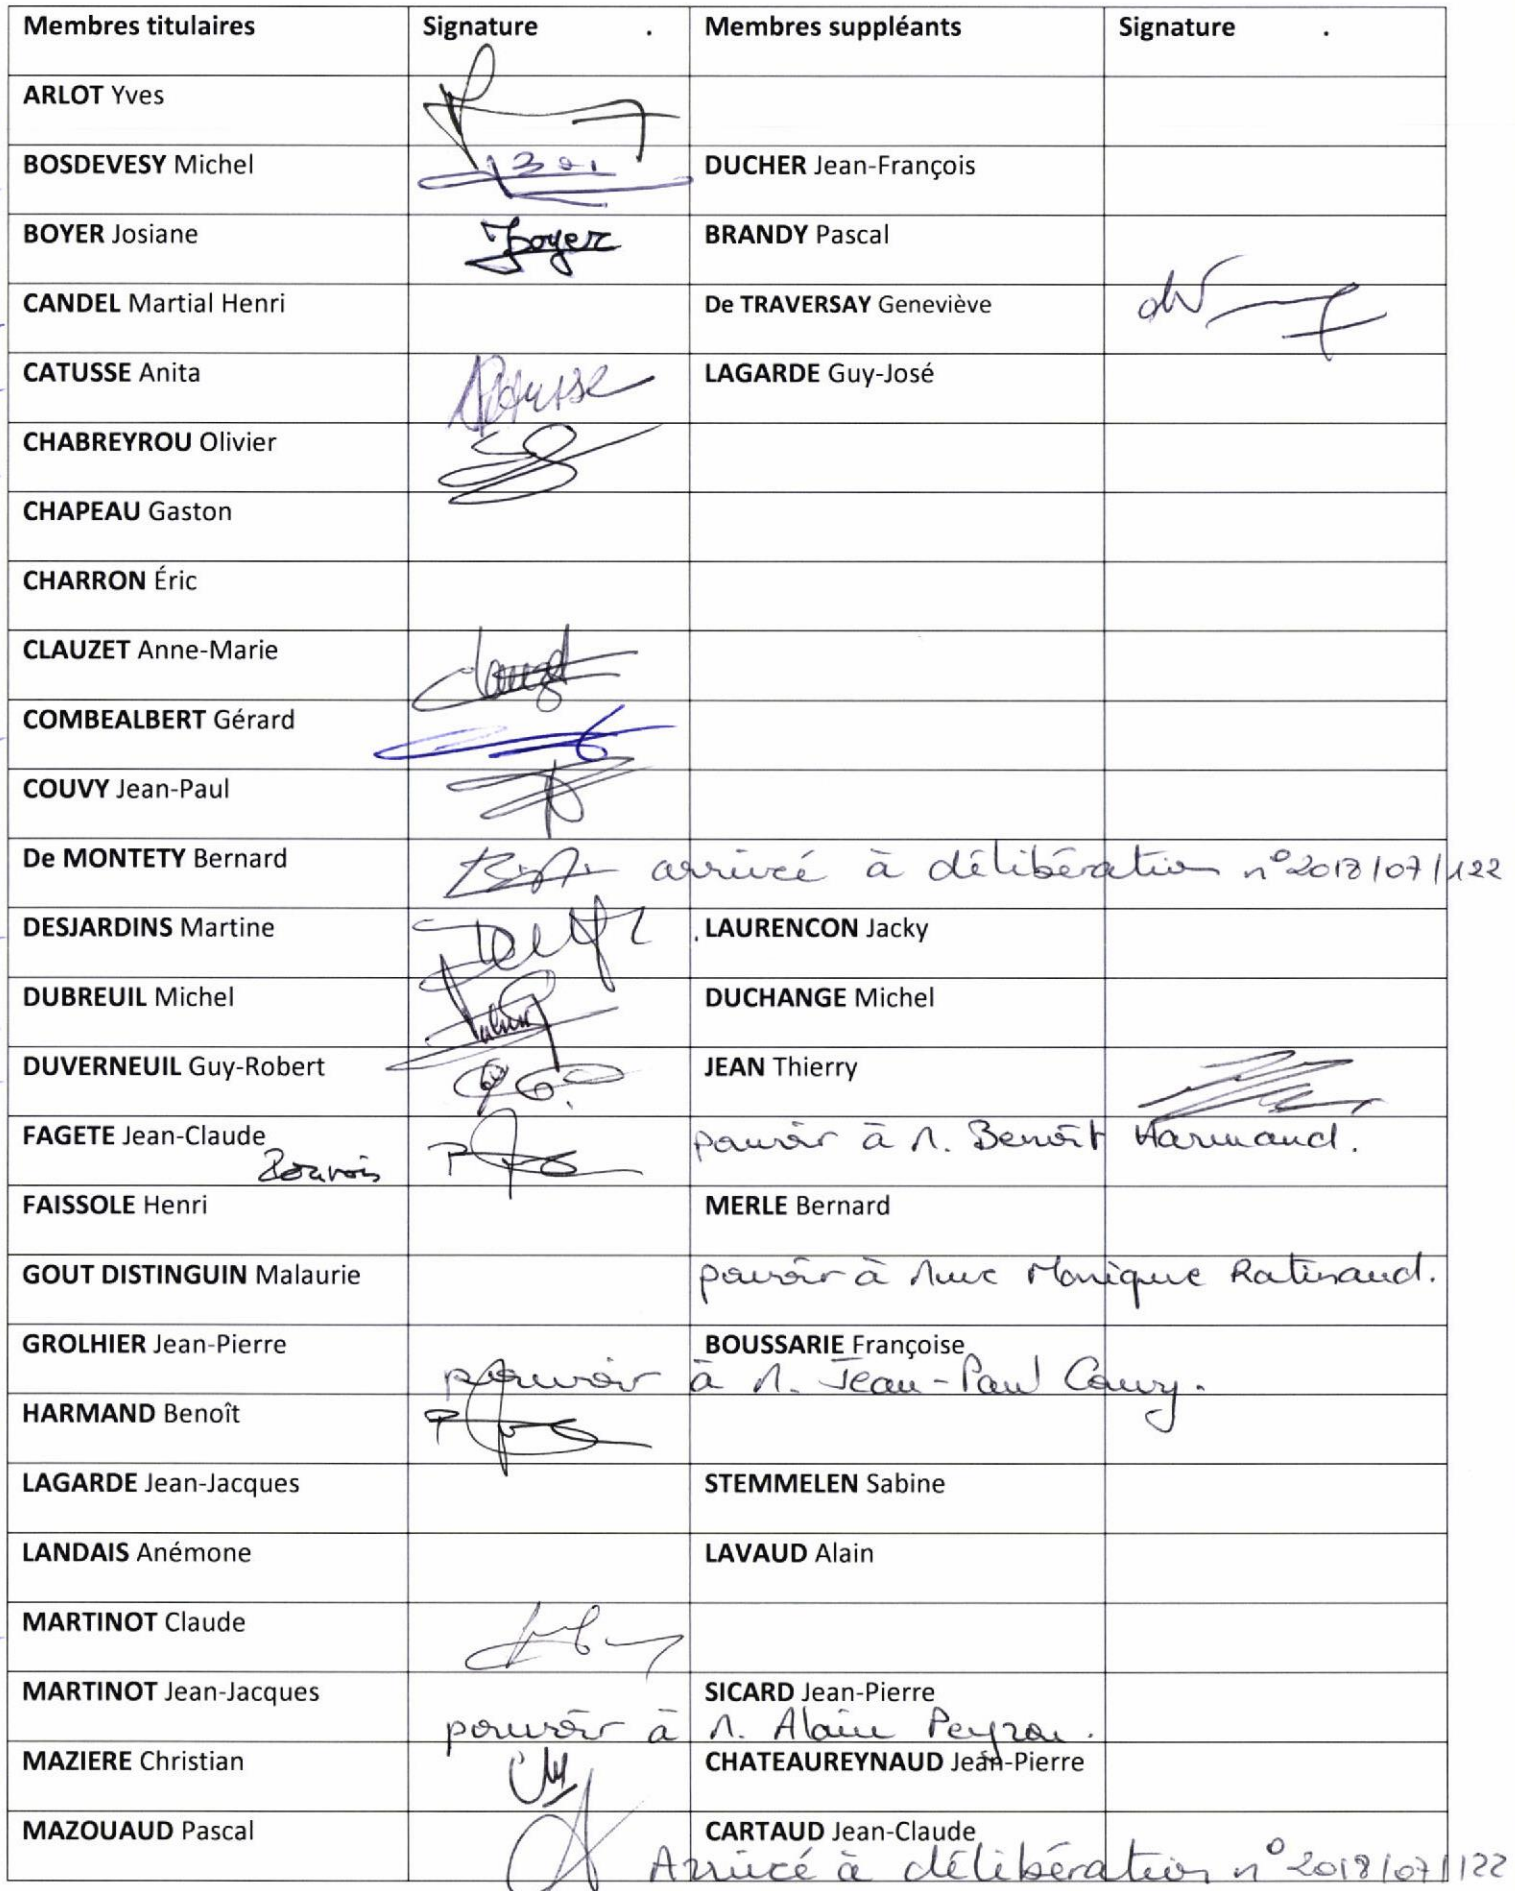 Membres titulaires Signature . Membres suppléants Signature .
ARLOT Yves
BOSDEVESY Michel DUCHER Jean-François
BOYER Josiane Boyer BRANDY Pascal
CANDEL Martial Henri De TRAVERSAY Geneviève
CATUSSE Anita LAGARDE Guy-José
CHABREYROU Olivier
CHAPEAU Gaston
CHARRON Éric
CLAUZET Anne-Marie
COMBEALBERT Gérard
COUVY Jean-Paul
De MONTETY Bernard arrivé à délibération n° 2018/07/122
DESJARDINS Martine LAURENCON Jacky
DUBREUIL Michel DUCHANGE Michel
DUVERNEUIL Guy-Robert JEAN Thierry
FAGETE Jean-Claude pouvoir à M. Benoît Harmand.
Pouvoir
FAISSOLE Henri MERLE Bernard
GOUT DISTINGUIN Malaurie pouvoir à Mme Monique Ratinaud.
GROLHIER Jean-Pierre BOUSSARIE Françoise
pouvoir à M. Jean-Paul Couvy.
HARMAND Benoît
LAGARDE Jean-Jacques STEMMELEN Sabine
LANDAIS Anémone LAVAUD Alain
MARTINOT Claude
MARTINOT Jean-Jacques SICARD Jean-Pierre
pouvoir à M. Alain Peyrou.
MAZIERE Christian CM CHATEAUREYNAUD Jean-Pierre
MAZOUAUD Pascal CARTAUD Jean-Claude
Arrivé à délibération n° 2018/07/122